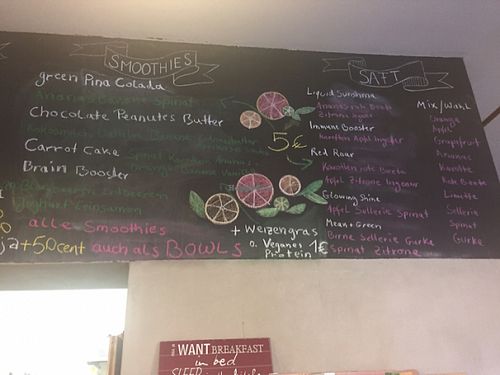 SMOOTHIES
green Pina Colada
Ananas Banane Spinat
Chocolate Peanutes Butter
Carrot Cake
Brain Booster
alle Smoothies
+50cent auch als BOWLS
5€
+ Weizengras
o. Veganes 1€
Protein
SAFT
Liquid Sunshine
Ananas rote Beete
Zitrone Ingwer
Immun Booster
Karotten Apfel Ingwer
Red Roar
Karotten rote Beete
Apfel Zitrone Ingwer
Glowing Shine
Apfel Sellerie Spinat
Mean + Green
Birne Sellerie Gurke
Spinat Zitrone
Mix/Wahl
Orange
Apfel
Grapefruit
Ananas
Karotte
Rote Beete
Limette
Sellerie
Spinat
Gurke
I WANT BREAKFAST
in bed
SLEEP in the